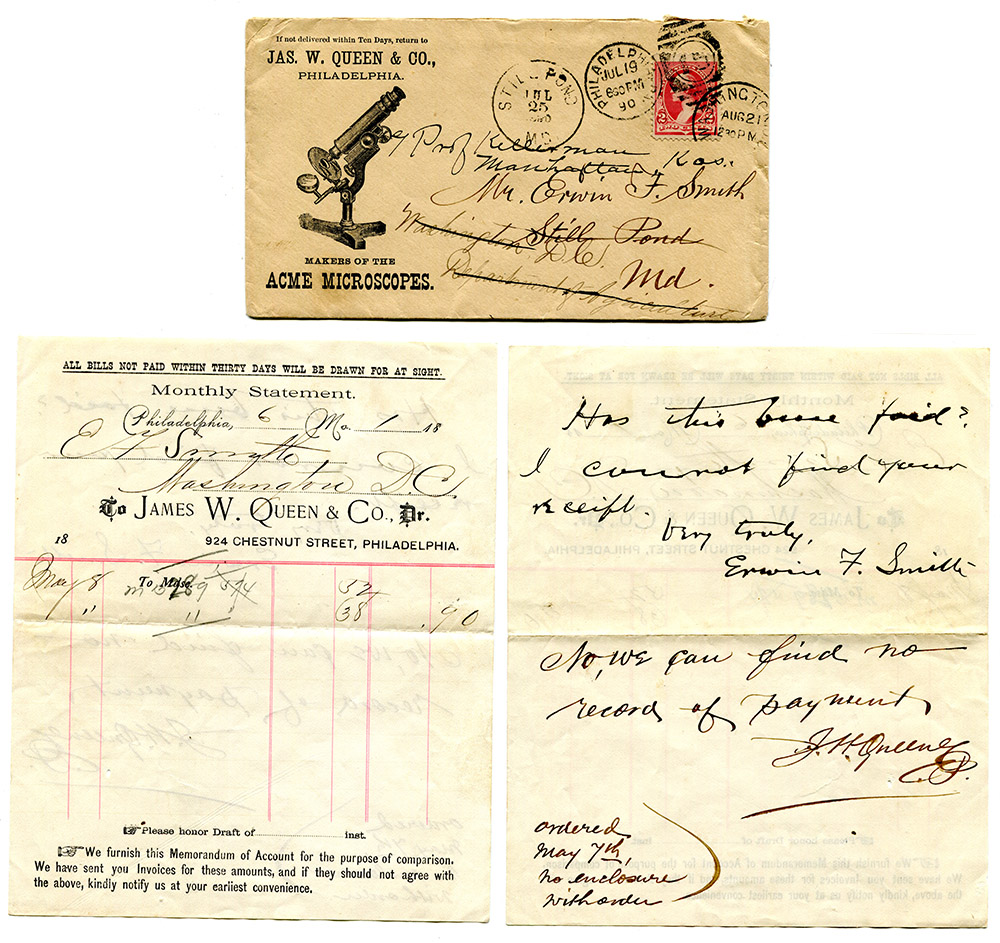 If not delivered within Ten Days, return to
JAS. W. QUEEN & CO.,
PHILADELPHIA.
MAKERS OF THE
ACME MICROSCOPES.
STILL POND
JUL
25
MD.
PHILADELPHIA
JUL 19
6 30 PM
90
WASHINGTON
AUG 21
12 30 PM
2 2
% Prof Kellerman
Manhattan, Kas.
Mr. Erwin F. Smith
Washington Still Pond
D.C.
Md.
Department of Agriculture
ALL BILLS NOT PAID WITHIN THIRTY DAYS WILL BE DRAWN FOR AT SIGHT.
Monthly Statement.
Philadelphia, 6 Mo. 1 18
E F Smythe
Washington D.C.
To JAMES W. QUEEN & CO., Dr.
924 CHESTNUT STREET, PHILADELPHIA.
18
May 8 To Mdse. 52
" " 38 .90
Please honor Draft of inst.
We furnish this Memorandum of Account for the purpose of comparison.
We have sent you Invoices for these amounts, and if they should not agree with
the above, kindly notify us at your earliest convenience.
Has this been paid?
I cannot find your
receipt.
Very truly,
Erwin F. Smith
No, we can find no
record of payment
J. W. Queen & Co.
ordered
May 7th,
no enclosure
with order